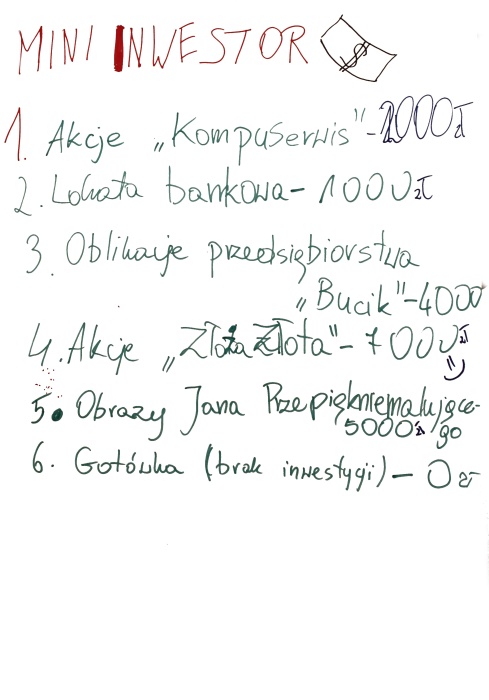 MINI INWESTOR
1. Akcje „Kompuserwis"- 2000zł
2. Lokata bankowa- 1000zł
3. Oblikacje przedsiębiorstwa
„Bucik"-4000
4. Akcje „Złoża Złota"- 7000zł
5. Obrazy Jana Przepiękniemalujące-
5000zł go
6. Gotówka (brak inwestygi) - 0zł